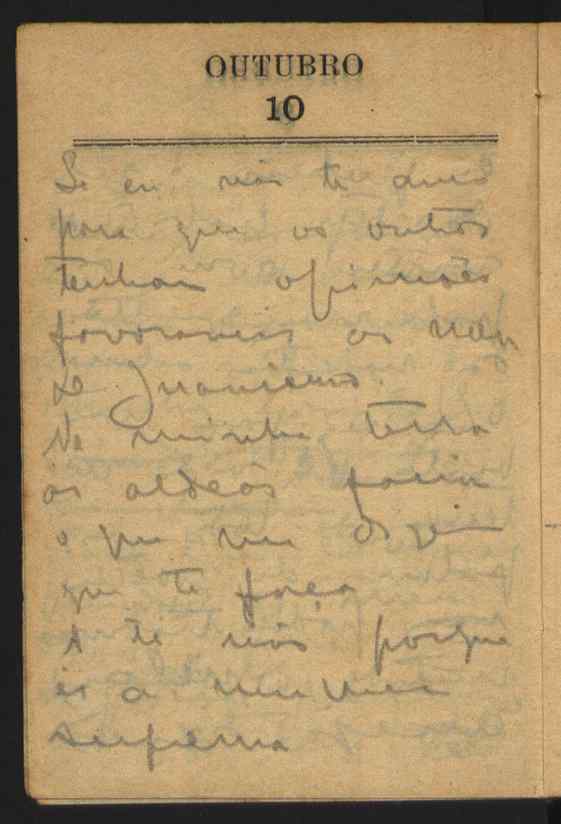 OUTUBRO
10
Se eu não te amo
para que os outros
tenham opiniões
favoraveis ao meu
Na minha terra
os aldeãos fazem
o que me dizem
que te faça
A ti não porque
és a minha
suprema